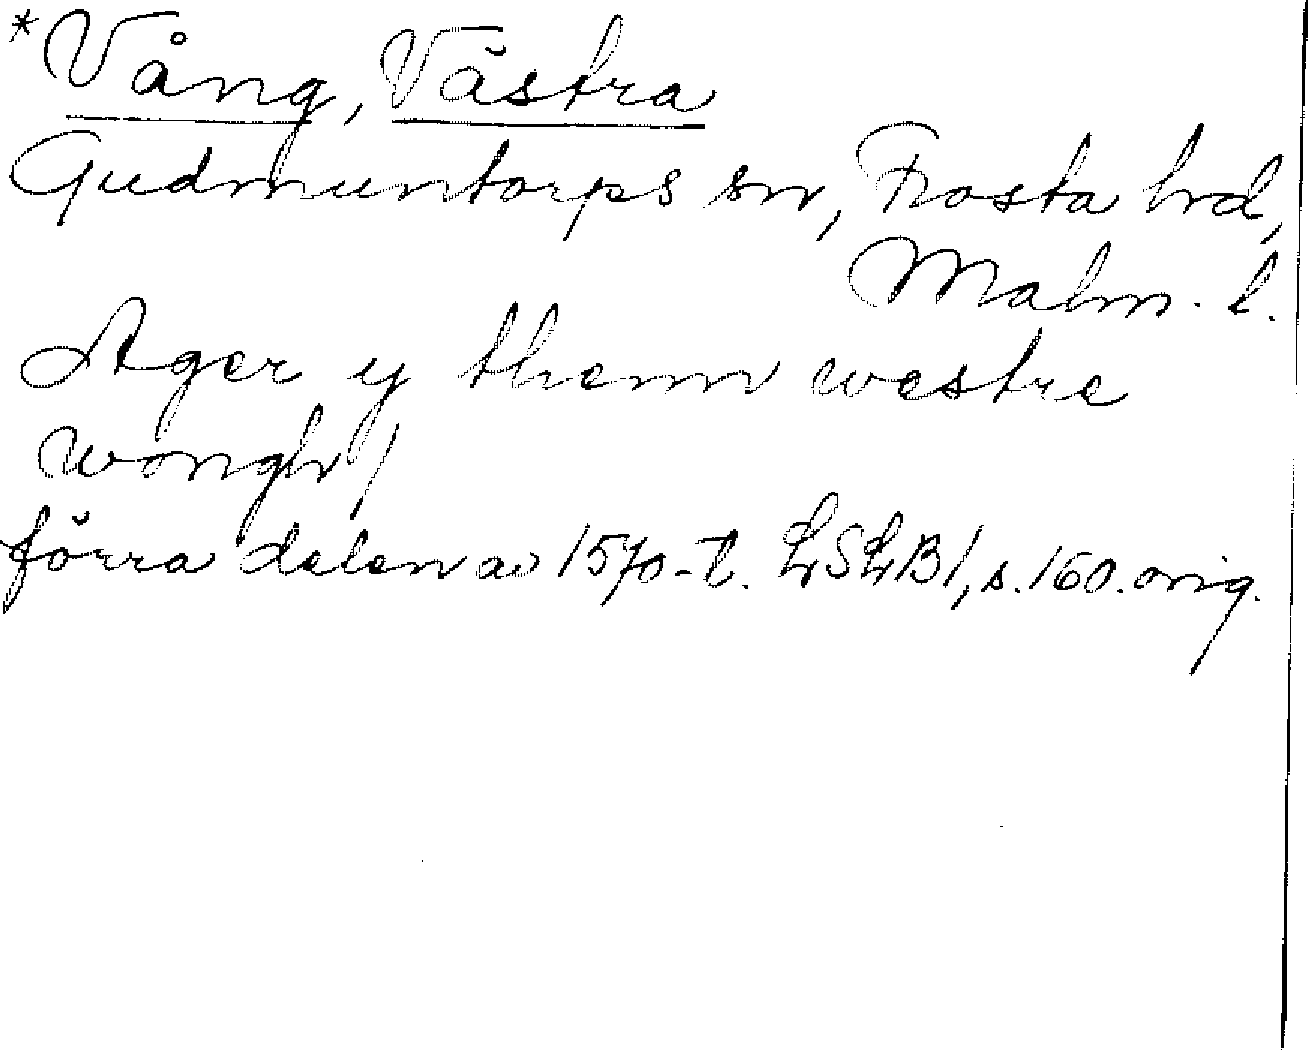 *Vång, Västra
Gudmuntorps sn, Frosta hrd,
Malm. l.
Ager y thenn westre
wongh /
förra delen av 1570-t. LSLB1, s. 160. orig.